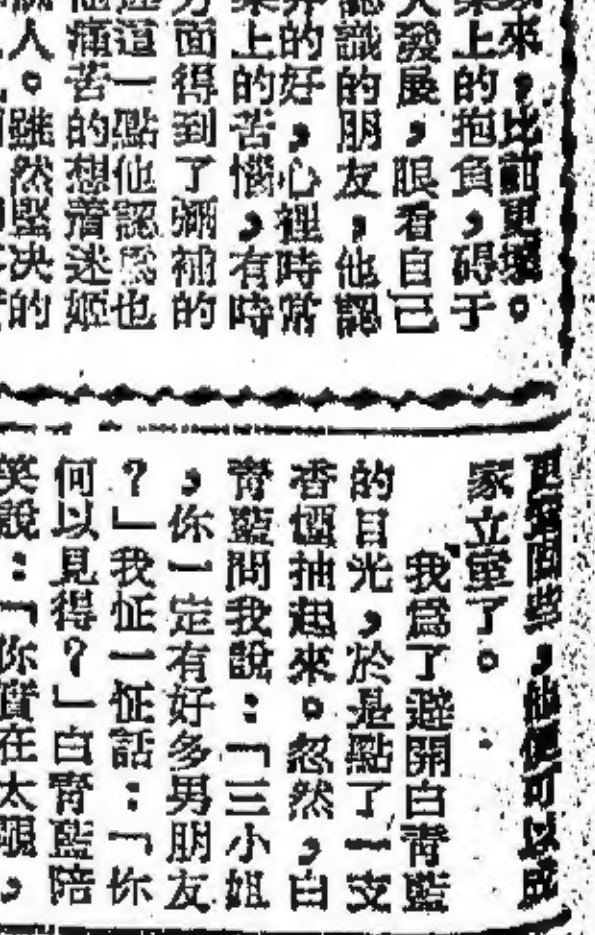 來，比前更壞。
業上的抱負，碍于
大發展，眼看自己
認識的朋友，他認
的好，心裡時常
業上的苦惱，有時
方面得到了彌補的
這一點他認爲也
他痛苦的想着迷姬
人。雖然堅决的
更窮困些，他便可以成
家立業了。
我爲了避開白青藍
的目光，於是點了一支
香烟抽起來。忽然，白
青藍問我說：「三小姐
，你一定有好多男朋友
？」我怔一怔話：「你
何以見得？」白青藍陪
笑說：「你實在太靚，